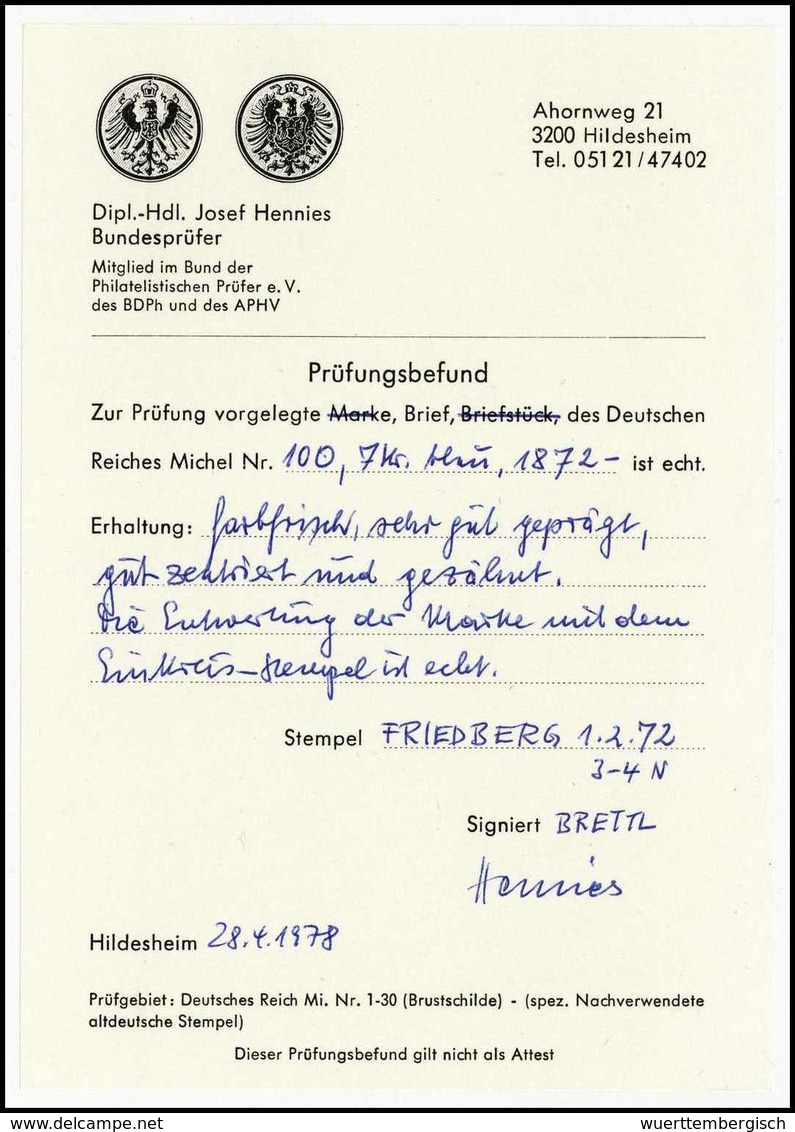 Ahornweg 21
3200 Hildesheim
Tel. 05121/47402
Dipl.-Hdl. Josef Hennies
Bundesprüfer
Mitglied im Bund der
Philatelistischen Prüfer e.V.
des BDPh und des APHV
Prüfungsbefund
Zur Prüfung vorgelegte Marke, Brief, Briefstück, des Deutschen
Reiches Michel Nr. 100, 7Kr. blau, 1872- ist echt.
Erhaltung: farbfrisch, sehr gut geprägt,
gut zentriert und gezähnt.
Die Entwertung der Marke mit dem
Einkreis-Stempel ist echt.
Stempel FRIEDBERG 1.2.72
3-4 N
Signiert BRETTL
Hennies
Hildesheim 28.4.1978
Prüfgebiet: Deutsches Reich Mi. Nr. 1-30 (Brustschilde) - (spez. Nachverwendete
altdeutsche Stempel)
Dieser Prüfungsbefund gilt nicht als Attest
delcampe.net
wuerttembergisch